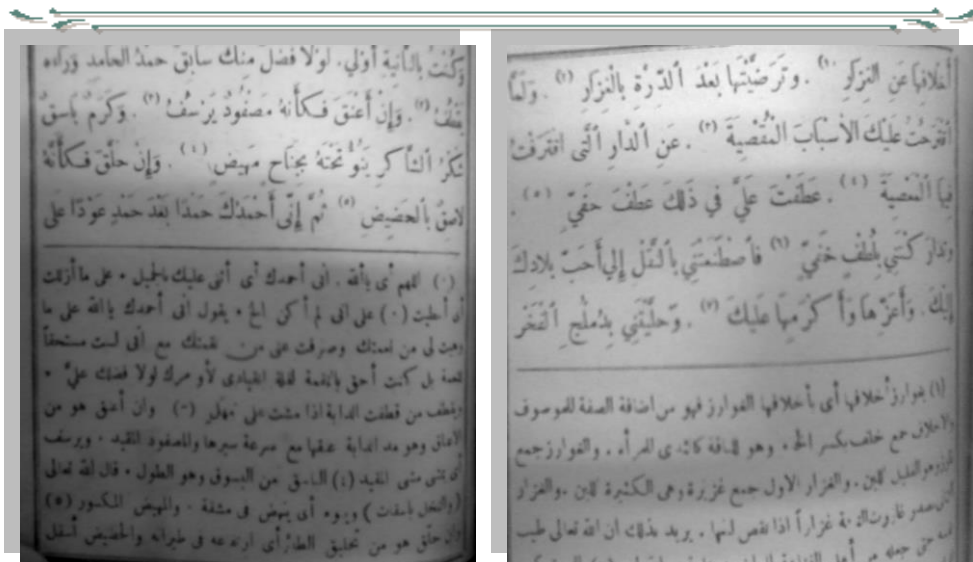 أخلافها عن الغزار (١) . وترضيتها بعد الدرة بالغزار (٢) . ولما
اقترحت عليك الأسباب المقصية (٣) . عن الدار التي اقترفت
فيها المعصية (٤) . عطفت علي في ذلك عطف حفي (٥) .
كتبي بلطف خفي (٦) فاصطنعتني بالنقل إلى أحب بلادك
إليك . وأعزها وأكرمها عليك (٧) . وحليتني بدملج الفخر
أخلافها أي بأخلافها الغوارز فهو من اضافة الصفة للموصوف
والاخلاف جمع خلف بكسر الخاء . وهو للناقة كالثدي للمرأة . والغوارز جمع
القليل اللبن . والغزار الاول جمع غزيرة وهي الكثيرة اللبن . والغزار
مصدر غارت الناقة غزاراً اذا نقص لبنها . يريد بذلك ان الله تعالى طيب
وكنت بالثانية أولى . لولا فضل منك سابق حمد الحامد وراءه
يقطف (٢) . وإن أعنق فكأنه مصفود يرسف (٣) . وكرم باسق
شكر الشاكر ينوء تحته بجناح مهيض (٤) . وإن حلق فكأنه
لاصق بالحضيض (٥) ثم إني أحمدك حمدا بعد حمد عودا على
(١) اللهم أي ياألله . اني أحمدك أي أثني عليك بالجميل . على ما أزللت
أي أعطيت (٠) على اني لم أكن الخ . يقول اني أحمدك ياالله على ما
وهبت لي من نعمتك وصرفت عني من نقمتك مع اني لست مستحقاً
للنعمة بل كنت أحق بالنقمة لقلة انقيادي لأوامرك لولا فضلك علي .
ويقطف من قطفت الدابة اذا مشت على مهل (٣) وان أعنق هو من
الاعناق وهو مد الدابة عنقها مع سرعة سيرها والمصفود المقيد . ويرسف
أي يمشي مشي المقيد (٤) الباسق من البسوق وهو الطول . قال الله تعالى
(والنخل باسقات) وينوء أي ينهض في مشقة . والمهيض المكسور (٥)
وان حلق هو من تحليق الطائر أي ارتفاعه في طيرانه والحضيض أسفل